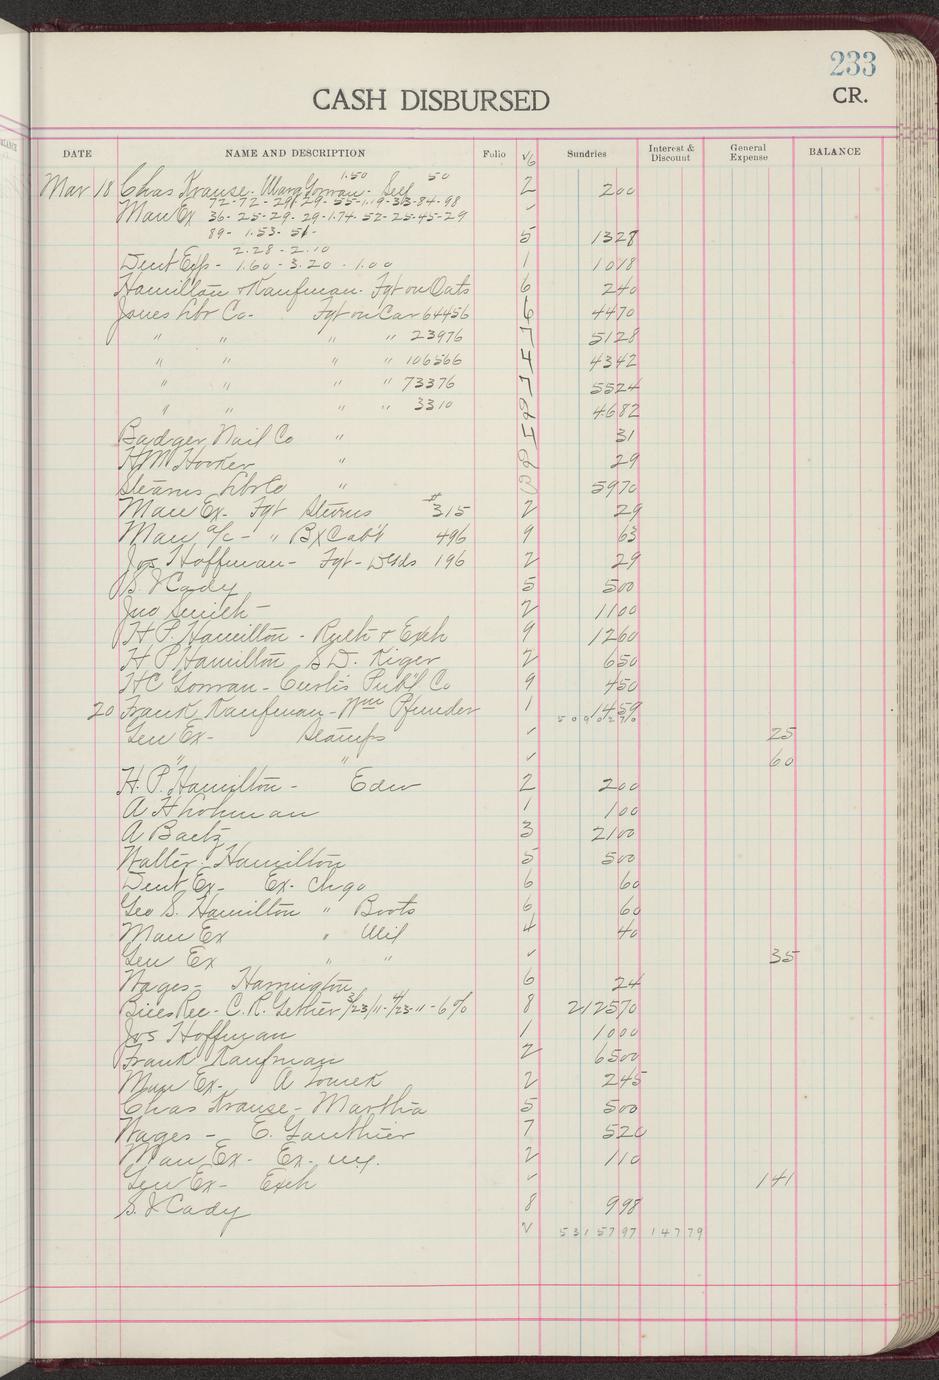 233
CASH DISBURSED
CR.
DATE NAME AND DESCRIPTION Folio √6 Sundries Interest & Discount General Expense BALANCE
1.50 50
Mar 18 Chas Krause - Gowran - Self 2 200
Man Ex 72-72-29-29-55-1.19-313-84-98 ✓
36-25-29-29-1.74-52-25-45-29
89-1.53-51- 5 1328
2.28-2.10
Dent Exp - 1.60-3.20-1.00 1 1018
Hamilton & Kaufman - Fgt on Oats 6 240
Jones Lbr Co - Fgt on Car 64456 6 4470
" " " " 23976 7 5128
" " " " 106566 4 4342
" " " " 73376 7 5524
" " " " 3310 8 4682
Badger Nail Co " 5 31
HM Hooker " 8 29
Stearns Lbr Co " 8 5970
Man Ex - Fgt Stevens #315 2 29
Man a/c - " Bx Cab'l 496 9 63
Jos Hoffman - Fgt - 196 2 29
S. J Cady 5 500
Jno Smith - 2 1100
H P. Hamilton - & Exch 9 1260
H P Hamilton S D. Kiger 2 650
HC Gowran - Curtis Publ Co 9 450
20 Frank Kaufman - Wm Pfunder 1 1459
5090270
Gen Ex - Stamps ✓ 25
" " ✓ 60
H. P. Hamilton - Edw 2 200
A H Lohman 1 100
A Baetz 3 2100
Walter Hamilton 5 500
Dent Ex - Ex - Chgo 6 60
Geo S. Hamilton " Boots 6 60
Man Ex " Mil 4 40
Gen Ex " " ✓ 35
Wages - Harrington 6 24
Bills Rec - C. R. Gether 3/23/11 - 4/23-11 - 6% 8 212570
Jos Hoffman 1 1000
Frank Kaufman 2 6500
Man Ex - A Tomek 2 245
Chas Krause - Martha 5 500
Wages - E. Gauthier 7 520
Man Ex - Ex - 2 110
Gen Ex - Exch ✓ 141
S. J Cady 8 998
✓ 5315797 14779